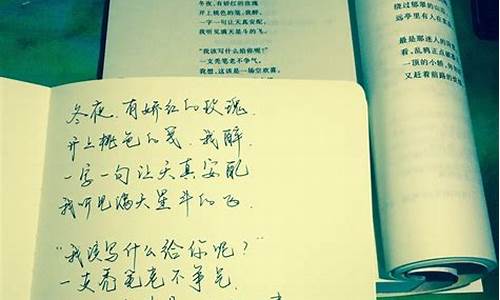 冬夜,有娇红的玫瑰
开上桃色的笺,我醉,
一字一句让天真安配,
我听见满天星斗的飞。
"我该写什么给你呢?"
一支秃笔老不争气,
我想,这该是一场空欢喜,
绕过郁翠的山
远亭里有人在
最是那迷人的
看,乱鸦正点破
一顶的小轿,
又赶着前路的
冬夜,有娇红的玫瑰,
开上桃色的笺,我醉
一字一句让天真安配
我听见满天星斗的飞
"我该写什么给你呢?"
一支秃笔老不争气